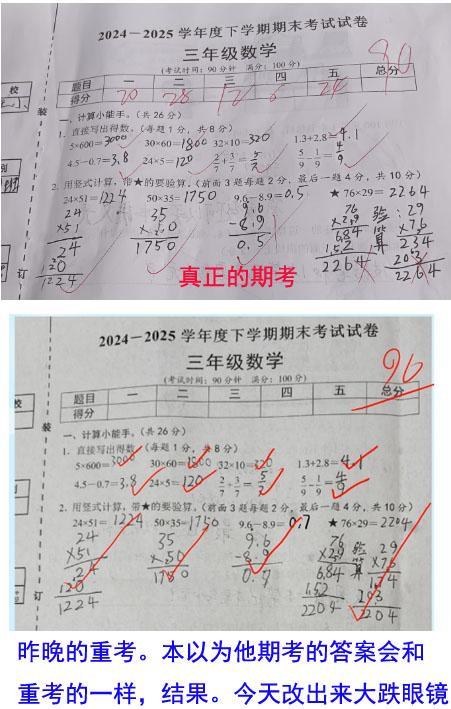 2024—2025 学年度下学期期末考试试卷
三年级数学
(考试时间:90分钟 满分:100分)
题目 一 二 三 四 五 总分
得分 20 28 12 6 24 90
一、计算小能手。(共 26 分)
1. 直接写出得数。(每题 1 分,共 8 分)
5×600=3000 30×60=1800 32×10=320 1.3+2.8=4.1
4.5-0.7=3.8 24×5=120 2/7+3/7=5/7 5/9-1/9=4/9
2. 用竖式计算,带★的要验算。(前面 3 题每题 2 分,最后一题 4 分,共 10 分)
24×51=1224 50×35=1750 9.6-8.9=0.5 ★76×29=2264
24 35 9.6 76 验 29
×51 ×50 -8.9 ×29 算 ×76
24 1750 0.5 684 234
120 152 203
1224 2264 2264
真正的期考
校
装
订
2024—2025 学年度下学期期末考试试卷
三年级数学
(考试时间:90分钟 满分:100分)
96
题目 一 二 三 四 五 总分
得分
一、计算小能手。(共 26 分)
1. 直接写出得数。(每题 1 分,共 8 分)
5×600=3000 30×60=1800 32×10=320 1.3+2.8=4.1
4.5-0.7=3.8 24×5=120 2/7+3/7=5/7 5/9-1/9=4/9
2. 用竖式计算,带★的要验算。(前面 3 题每题 2 分,最后一题 4 分,共 10 分)
24×51=1224 50×35=1750 9.6-8.9=0.7 ★76×29=2204
24 35 9.6 76 验 29
×51 ×50 -8.9 ×29 算 ×76
24 1750 0.7 684 174
120 152 203
1224 2204 2204
校
装
订
昨晚的重考。本以为他期考的答案会和
重考的一样,结果。今天改出来大跌眼镜